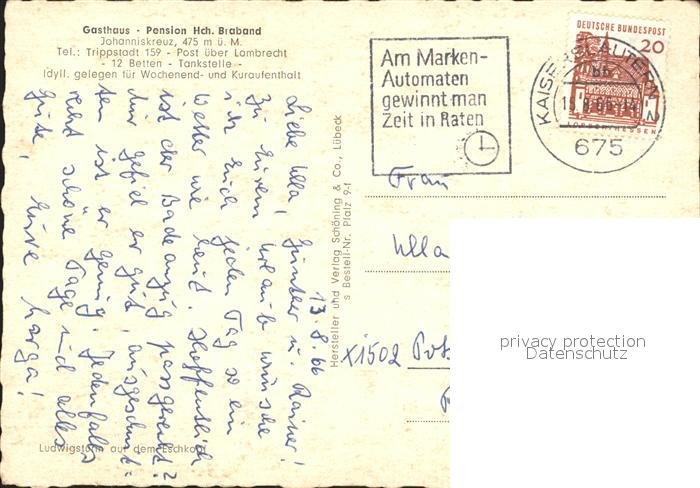 Gasthaus - Pension Hch. Braband
Johanniskreuz, 475 m ü. M.
Tel.: Trippstadt 159 - Post über Lambrecht
- 12 Betten - Tankstelle -
Idyll. gelegen für Wochenend- und Kuraufenthalt
13.8.66
Liebe Ulla, Günther u. Rainer!
Zu Eurem Urlaub wünsche
ich Euch jeden Tag so ein
Wetter wie heut. Hoffentlich
ist der Badeanzug passgerecht?
Mir gefiel er gut, ausgeschnit-
ten ist er genug. Jedenfalls
recht schöne Tage und alles
Gute, Eure Marga!
Ludwigsturm auf dem Eschkopf
Hersteller und Verlag Schöning & Co., Lübeck
s Bestell-Nr. Pfalz 9-1
Am Marken-
Automaten
gewinnt man
Zeit in Raten
DEUTSCHE BUNDESPOST
20
KAISERSLAUTERN 2
bb
675
Frau
Ulla
X1502 Pots
privacy protection
Datenschutz